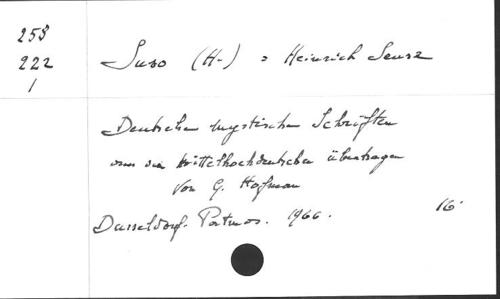 253
222
1
Suso (H.) = Heinrich Seuse
Deutsche mystische Schriften
aus dem Mittelhochdeutschen übertragen
von G. Hofmann
Dusseldorf. Patmos. 1966.
16°